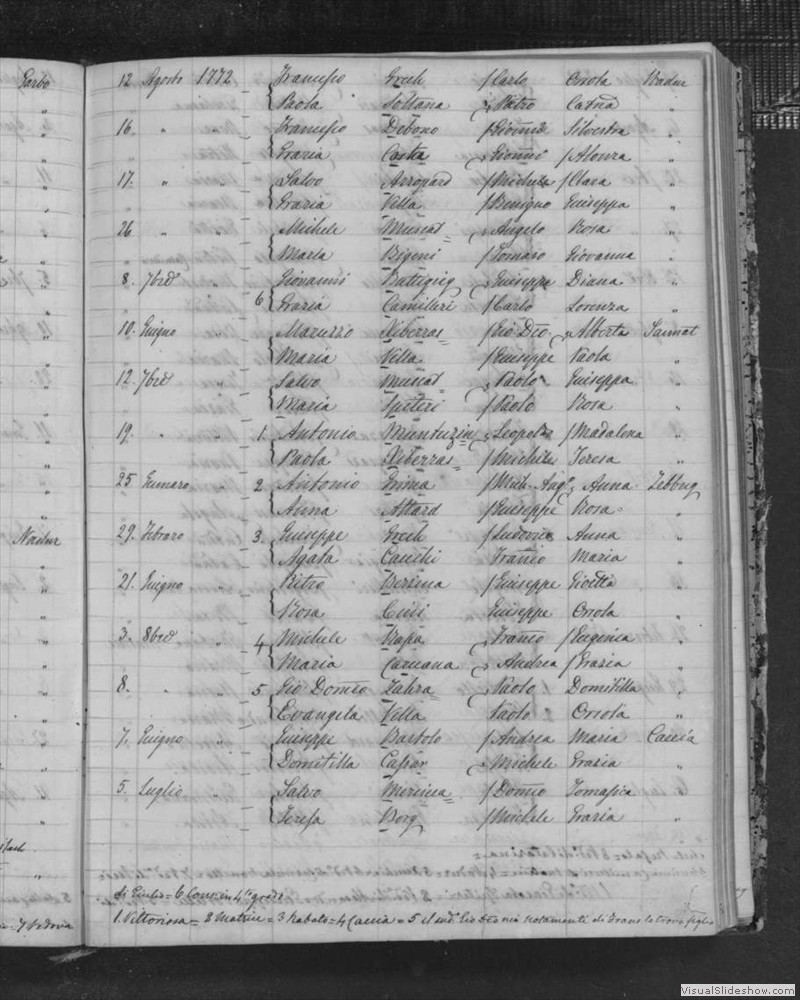 Garbo 12 Agosto 1772 Francesco Grech Carlo Orsola Nadur
Paola Soltana Pietro Catña "
16. " " Francesco Debono Giovanni Silvestra "
Grazia Costa Gionni Alonza "
17. " " Salvo Michele Clara "
Grazia Villa Benigno Giuseppa "
26 " " Michele Muscat Angelo Rosa "
Maria Bigeni Tomaso Giovanna "
8. 7bre " Giovanni Buttigieg Giuseppe Diana "
6 Grazia Camilleri Carlo Lorenza "
10. Giugno " Maruzzo Xiberras Gio Dco Alberta Sannat
Maria Villa Giuseppe Paola "
12. 7bre " Salvo Muscat Paolo Giuseppa "
Maria Spiteri Paolo Rosa "
19. " " 1. Antonio Leopoldo Madalena "
Paola Xiberras Michele Teresa "
25 Gennaro " 2 Antonio Mich. Ang. Anna Zebbug
Anna Attard Giuseppe Rosa "
Nadur 29. Febraro " 3. Giuseppe Grech Ludovico Anna "
Agata Cauchi Franco Maria "
21. Giugno " Pietro Giuseppe "
Rosa Giuseppe Orsola "
3. 8bre " 4 Michele Rapa Franco Eugenia "
Maria Caruana Andrea Grazia "
8. " " 5 Gio Domco Zahra Paolo Domitilla "
Evangela Villa Paolo Orsola "
7. Giugno " Giuseppe Bartolo Andrea Maria Caccia
Domitilla Caspar Michele Grazia "
5. Luglio " Salvo Mercieca Domco Tomasica "
Teresa Borg Michele Grazia "
di Giulio = 6 Cons. in 4to grado
1. Vittoriosa = 2 Matrice = 3 Rabato = 4 Caccia = 5 il sud. Gio Dco nei notamenti di Franco lo trovo figlio
VisualSlideshow.com